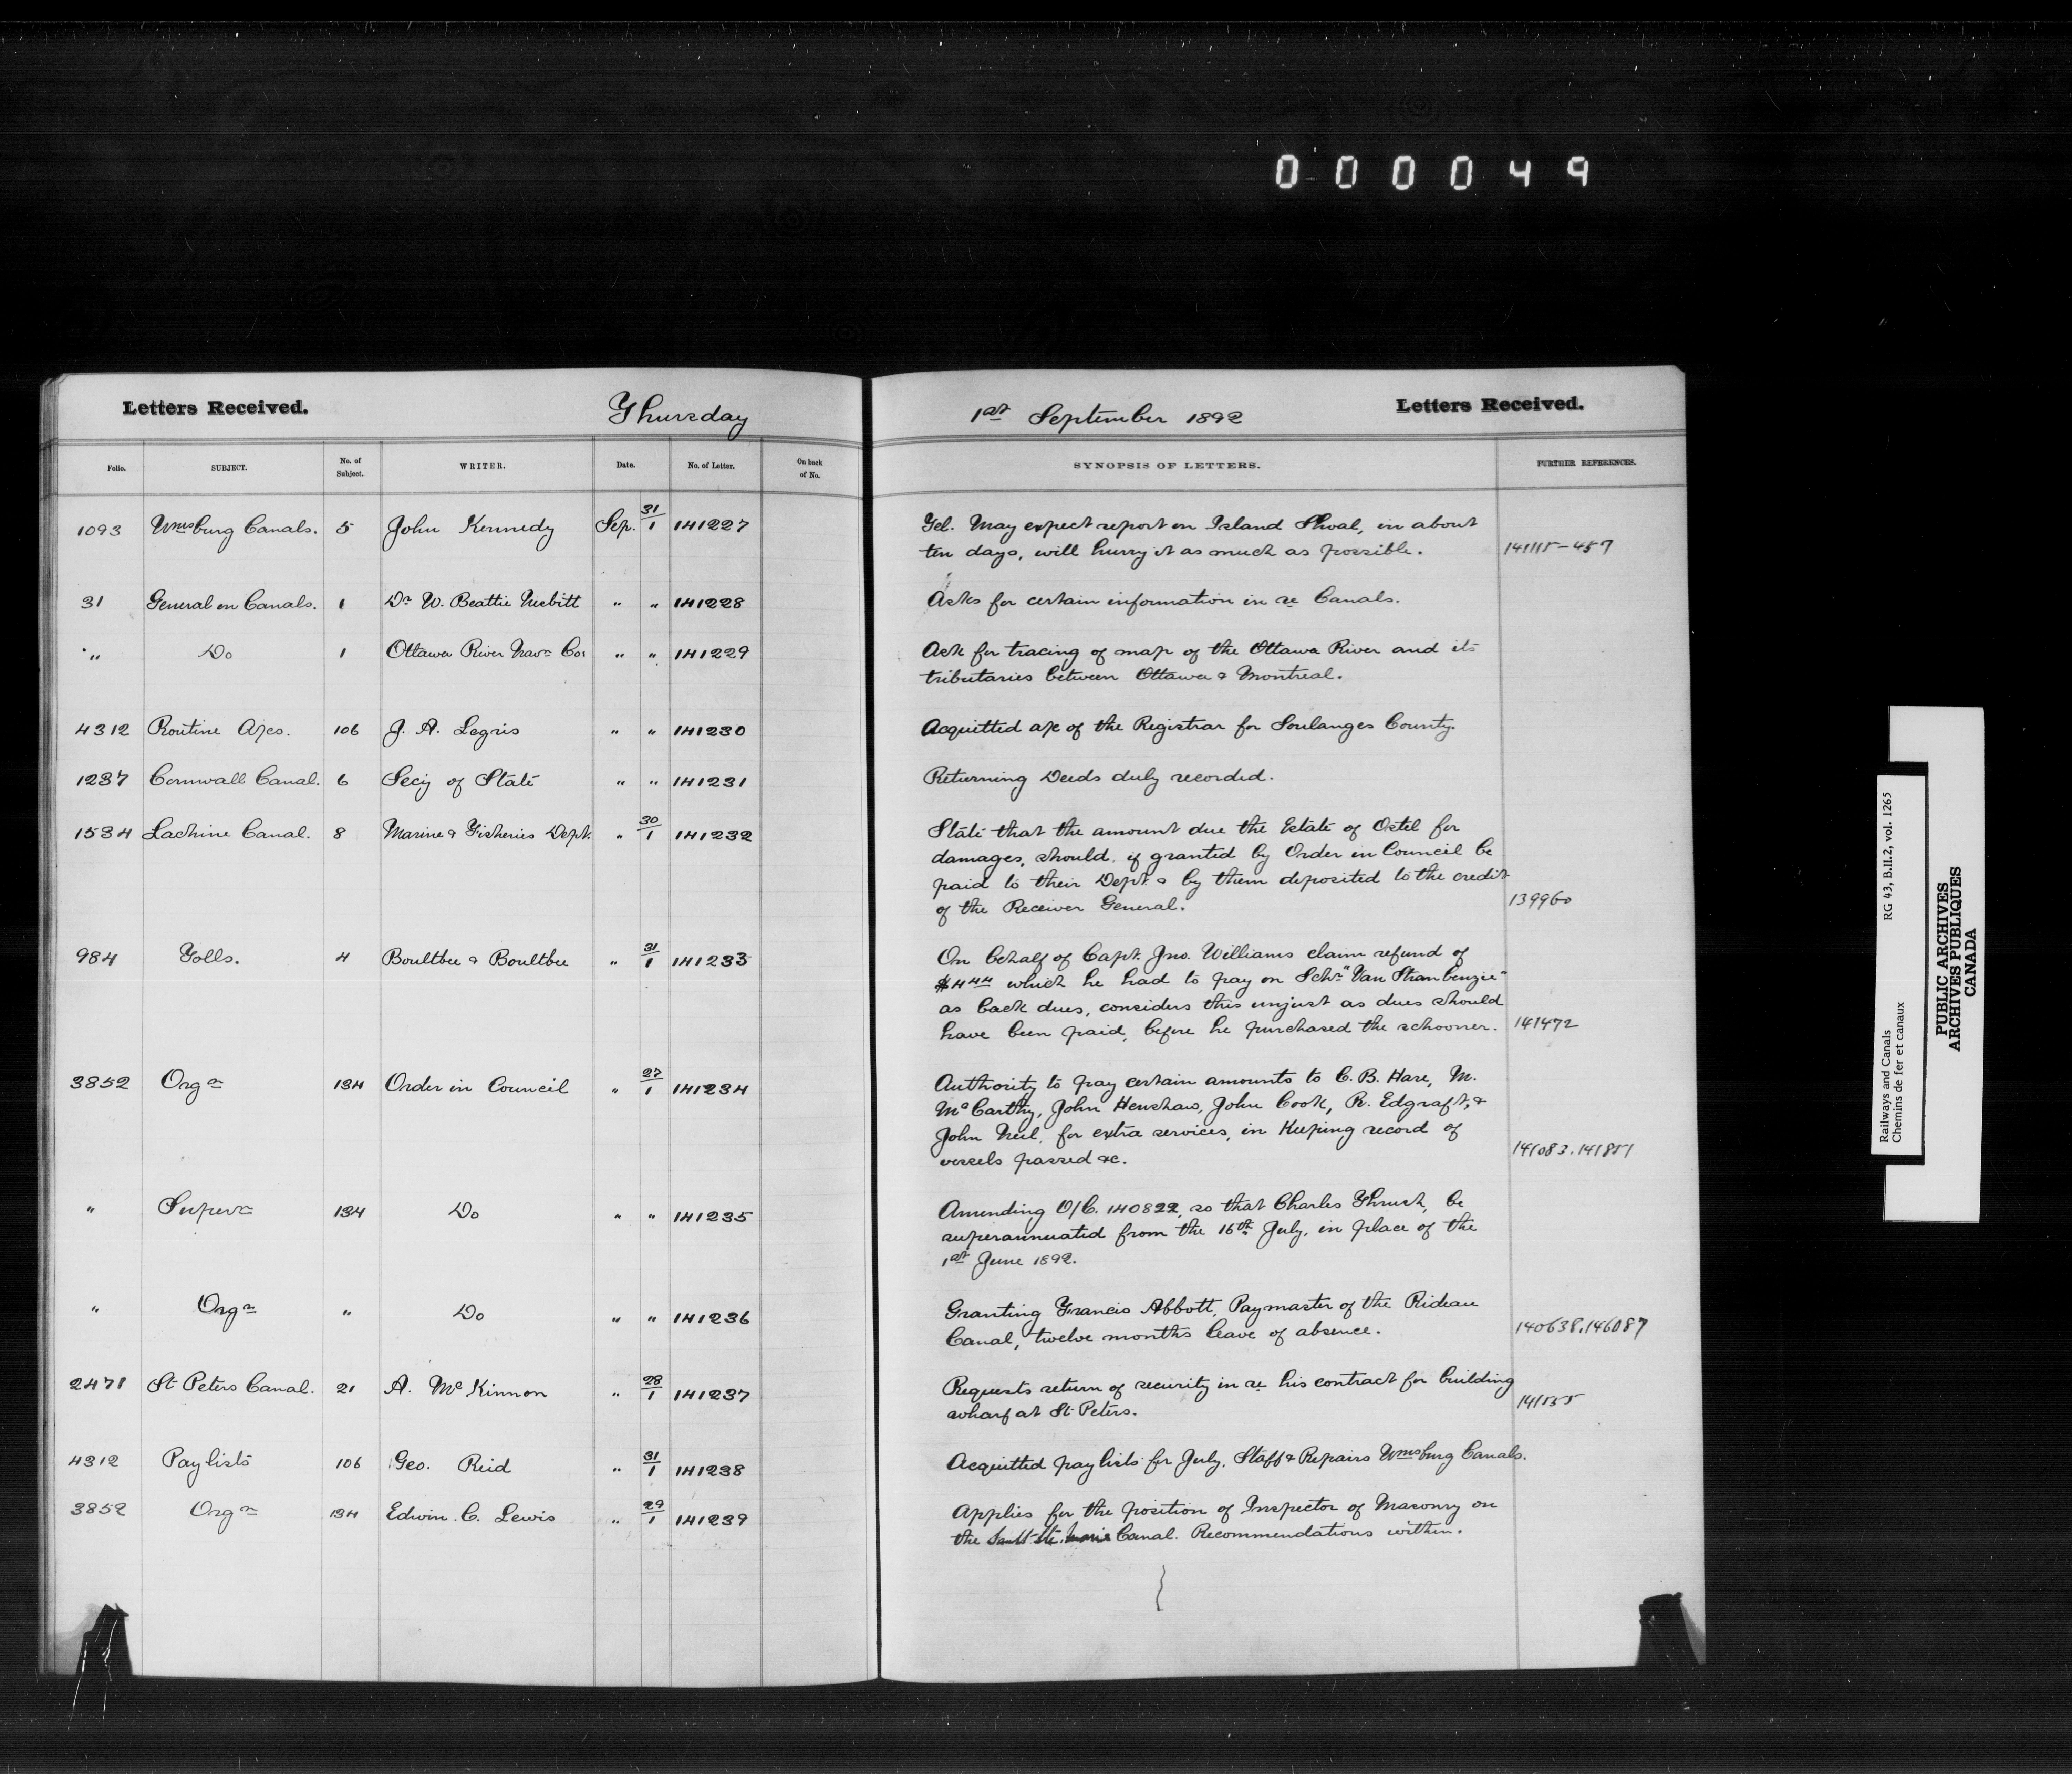 0 0 0 0 4 9
Letters Received. Thursday 1st September 1892 Letters Received.
Folio. SUBJECT. No. of Subject. WRITER. Date. No. of Letter. On back of No. SYNOPSIS OF LETTERS. FURTHER REFERENCES.
1093 Wmsburg Canals. 5 John Kennedy Sep. 31/1 141227 Tel. May expect report on Island Shoal, in about
ten days, will hurry it as much as possible. 141115-457
31 General on Canals. 1 Dr W. Beattie Nesbitt " " 141228 Asks for certain information in re Canals.
" Do 1 Ottawa River Navn Coy " " 141229 Ask for tracing of map of the Ottawa River and its
tributaries between Ottawa & Montreal.
4312 Routine A/cs. 106 J. A. Legris " " 141230 Acquitted a/c of the Registrar for Soulanges County.
1237 Cornwall Canal. 6 Secy of State " " 141231 Returning Deeds duly recorded.
1534 Lachine Canal. 8 Marine & Fisheries Dept. " 30/1 141232 State that the amount due the Estate of Ostel for
damages, should, if granted by Order in Council be
paid to their Dept. & by them deposited to the credit
of the Receiver General. 139960
984 Tolls. 4 Boultbee & Boultbee " 31/1 141233 On behalf of Capt. Jno. Williams claim refund of
$4 44 which he had to pay on Schr "Van Straubenzie"
as back dues, considers this unjust as dues should
have been paid, before he purchased the schooner. 141472
3852 Orgn 134 Order in Council " 27/1 141234 Authority to pay certain amounts to C. B. Hare, M.
McCarthy, John Henshaw, John Cook, R. Edgraft, &
John Neil, for extra services, in Keeping record of
vessels passed &c. 141083. 141851
" Supern 134 Do " " 141235 Amending O/C. 140822, so that Charles Thrush, be
superannuated from the 16th July, in place of the
1st June 1892.
" Orgn " Do " " 141236 Granting Francis Abbott, Paymaster of the Rideau
Canal, twelve months leave of absence. 140638, 146087
2471 St Peters Canal. 21 A. McKinnon " 28/1 141237 Requests return of security in re his contract for building
wharf at St Peters. 141555
4312 Paylists 106 Geo. Reid " 31/1 141238 Acquitted paylists for July, Staff & Repairs Wmsburg Canals.
3852 Orgn 134 Edwin. C. Lewis " 29/1 141239 Applies for the position of Inspector of Masonry on
the Sault Ste. Marie Canal. Recommendations within.
Railways and Canals RG 43, B.II.2, vol. 1265
Chemins de fer et canaux
PUBLIC ARCHIVES
ARCHIVES PUBLIQUES
CANADA